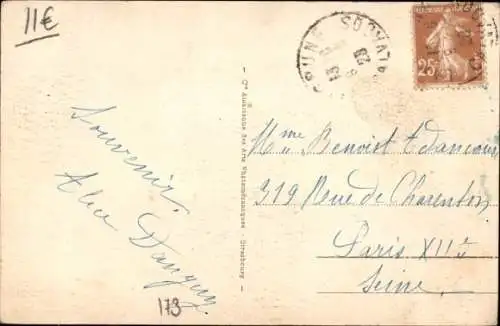 11€
25c
Souvenir.
Alice Danguy
173
Cie Alsacienne des Arts Photomécaniques - Strasbourg
Mme Benoist
319 Rue de Charenton
Paris XIIe
Seine.